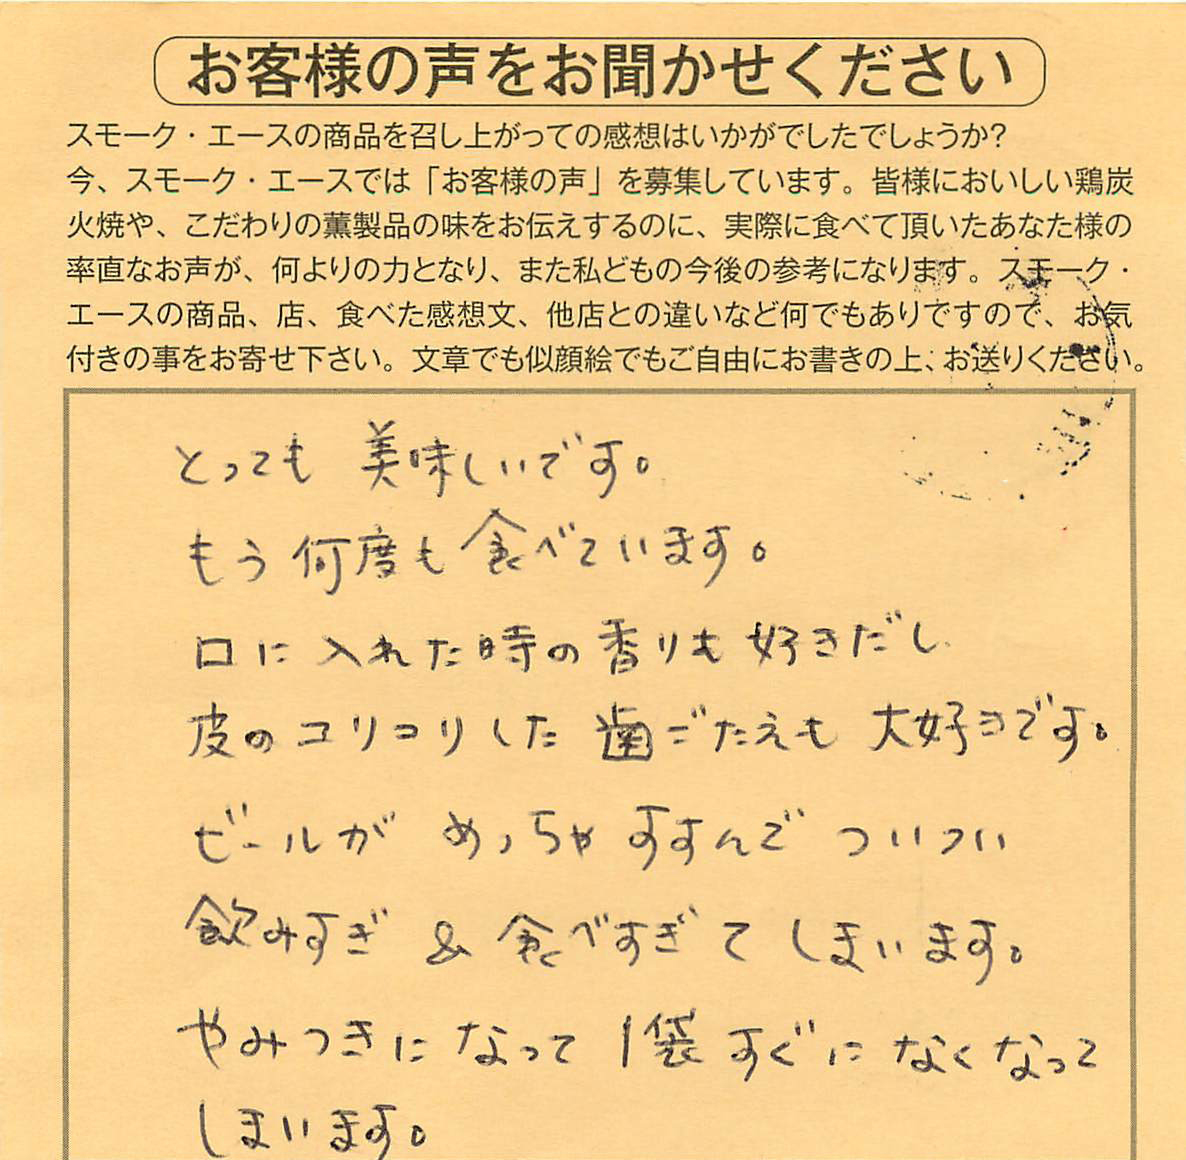 お客様の声をお聞かせください
スモーク・エースの商品を召し上がっての感想はいかがでしたでしょうか?
今、スモーク・エースでは「お客様の声」を募集しています。皆様においしい鶏炭
火焼や、こだわりの薫製品の味をお伝えするのに、実際に食べて頂いたあなた様の
率直なお声が、何よりの力となり、また私どもの今後の参考になります。スモーク・
エースの商品、店、食べた感想文、他店との違いなど何でもありですので、お気
付きの事をお寄せ下さい。文章でも似顔絵でもご自由にお書きの上、お送りください。
とっても 美味しいです。
もう何度も食べています。
口に入れた時の香りも好きだし
皮のコリコリした 歯ごたえも 大好きです。
ビールが めっちゃ すすんで ついつい
飲みすぎ & 食べすぎて しまいます。
やみつきに なって 1袋 すぐに なくなって
しまいます。